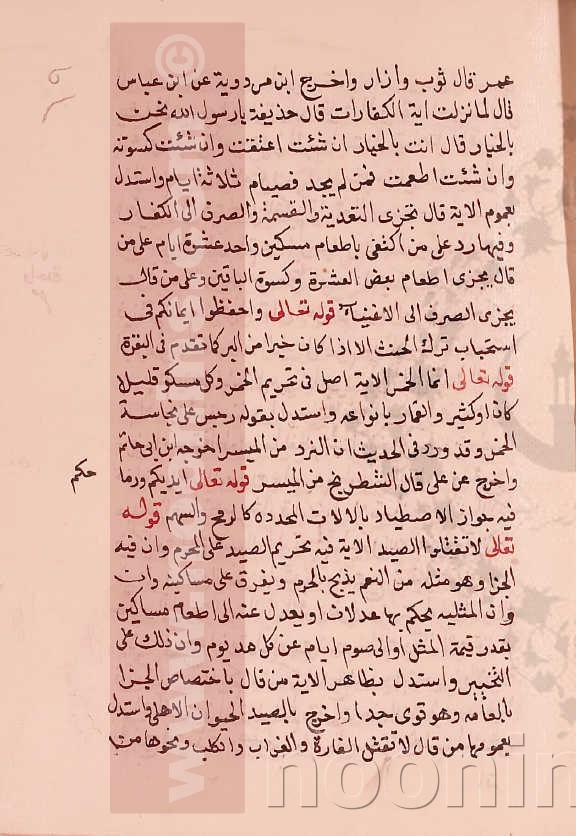 عمر قال ثوب وازار واخرج ابن مردوية عن ابن عباس
قال لما نزلت اية الكفارات قال حذيفة يارسول الله نحن
بالخيار قال انت بالخيار ان شئت اعتقت وان شئت كسوته
وان شئت اطعمت فمن لم يجد فصيام ثلاثة ايام واستدل
بعموم الاية قال تجزى التعدية والقسمة والصرف الى الكفار
وفيها رد على من اكتفى باطعام مسكين واحد عشرة ايام على من
قال يجزى اطعام بعض العشرة وكسوة الباقين وعلى من قال
يجزى الصرف الى الاغنياء قوله تعالى واحفظوا ايمانكم فى
استحباب ترك الحنث الا اذا كان خيرا من البر كما تقدم فى البقرة
قوله تعالى انما الخمر الاية اصل فى تحريم الخمر وكل مسكر قليلا
كان او كثير والقمار بانواعه واستدل بقوله رجس على نجاسة
الخمر وقد ورد فى الحديث ان النرد من الميسر اخرجه ابن ابى حاتم
واخرج عن على قال الشطرنج من الميسر قوله تعالى ايديكم ورما
حكم
فيه جواز الاصطياد بالالات المحدده كالرمح والسهم قوله
تعالى لا تقتلوا الصيد الاية فيه تحريم الصيد على المحرم وان فيه
الجزا وهو مثله من النعم يذبح بالحرم ويفرق على مساكينه وان
وان المثليه يحكم بها عدلان او يعدل عنه الى اطعام مساكين
بقدر قيمة المثل او الى صوم ايام عن كل مد يوم وان ذلك على
التخيير واستدل بظاهر الاية من قال باختصاص الجزا
بالعامد وهو قوى جدا واخرج بالصيد الحيوان الاهلى واستدل
بعمومها من قال لا تقتل الفارة والغراب والكلب ونحوها من
www.noor
©
noonin